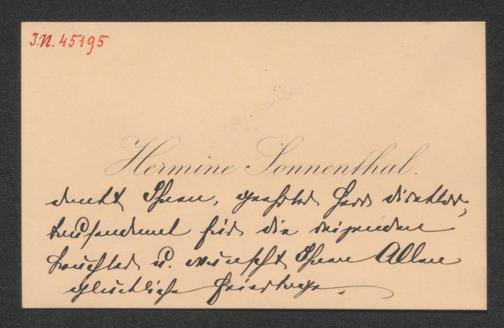 I.N. 45195
Hermine Sonnenthal.
dankt Ihnen, geehrter Herr Direktor,
tausendmal für die reizenden
u. wünscht Ihnen Allen
glückliche Feiertage.